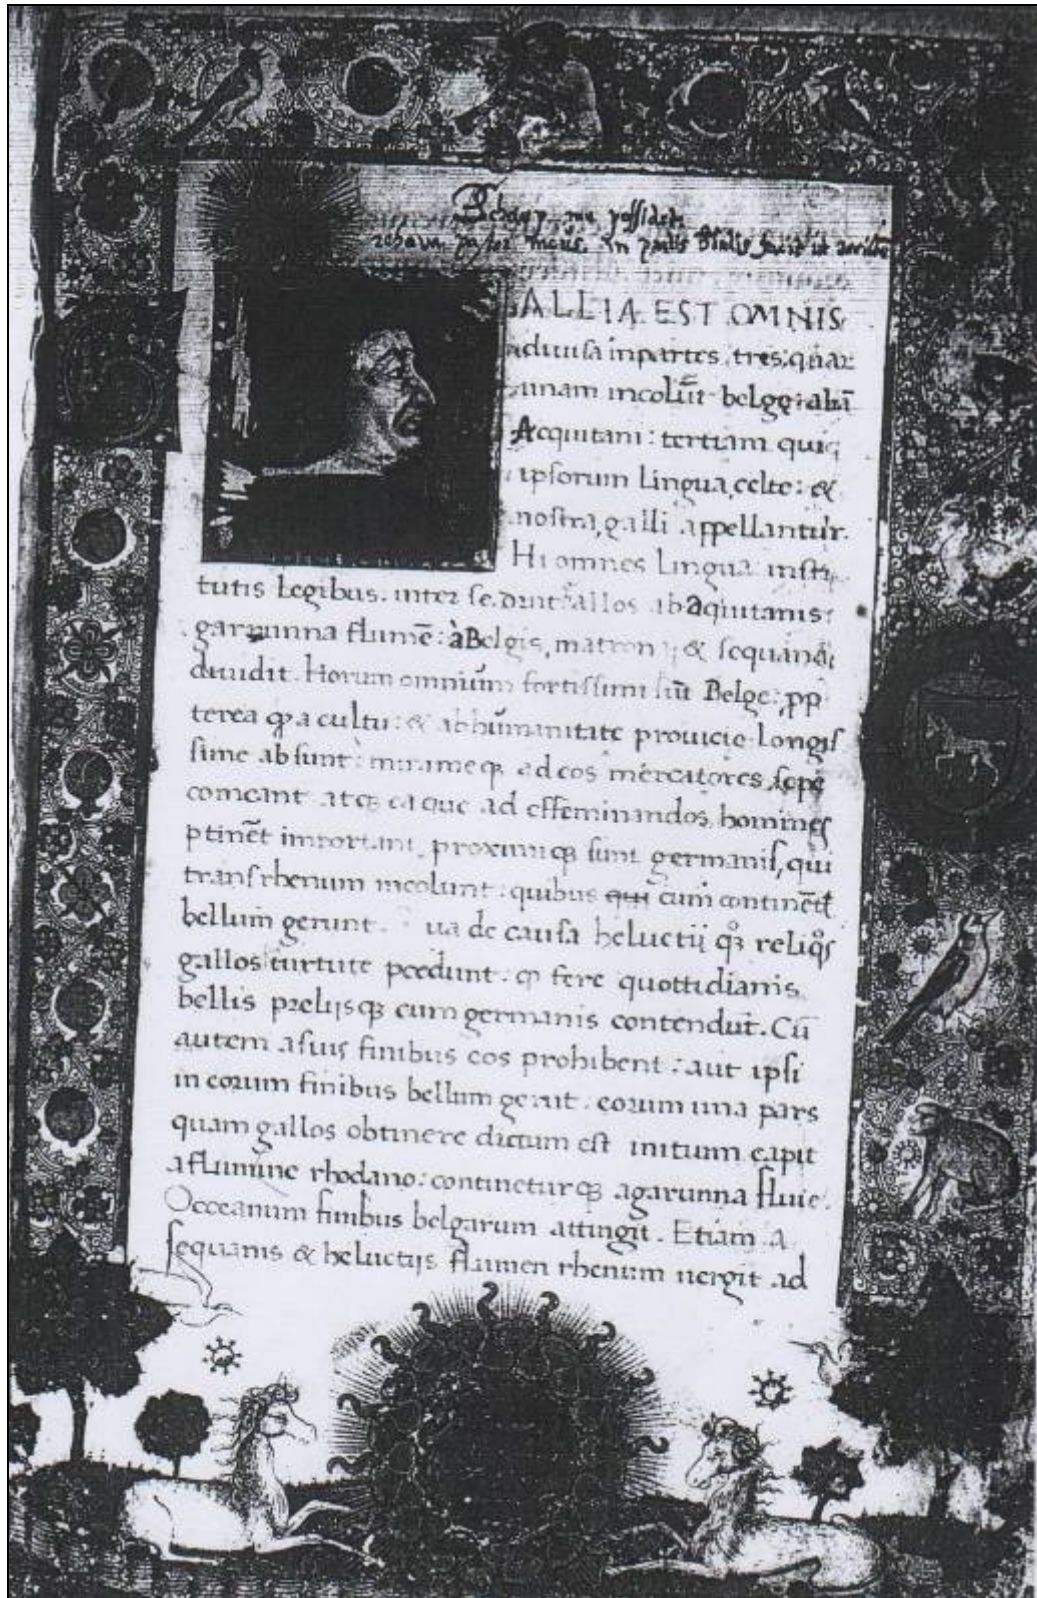 me possidet
pater meus in
ALLIA EST OMNIS
diuisa inpartes tres: quaꝝ
unam incolūt belgę: aliā
Acquitani: tertiam qui
ipsorum lingua, celte: &
nostra, galli appellantur.
Hi omnes lingua insti
tutis legibus. inter se allos abaquitanis:
garunna flumē: à Belgis, matron & sequana
diuidit. Horum omnium fortissimi sūt Belge: pp
terea ꝙ a cultu: & ab humanitate prouicie longis
sime absunt: minimeqꝫ ad eos mercatores sepe
comeant atqꝫ ea que ad effeminandos homines
ptinēt important. proximiqꝫ sunt germanis, qui
trans rhenum incolunt: quibus qui cum continēt
bellum gerunt. ua de causa heluetij qꝫ reliqs
gallos uirtute pcedunt. ꝙ fere quottidianis
bellis prelijsqꝫ cum germanis contendūt. Cū
autem asuis finibus eos prohibent: aut ipsi
in eorum finibus bellum gerūt. eorum una pars
quam gallos obtinere dictum est initium capit
aflumine rhodano: contineturqꝫ agarunna fluie.
Occeanum finibus belgarum attingit. Etiam a
sequanis & heluetijs flumen rhenum uergit ad